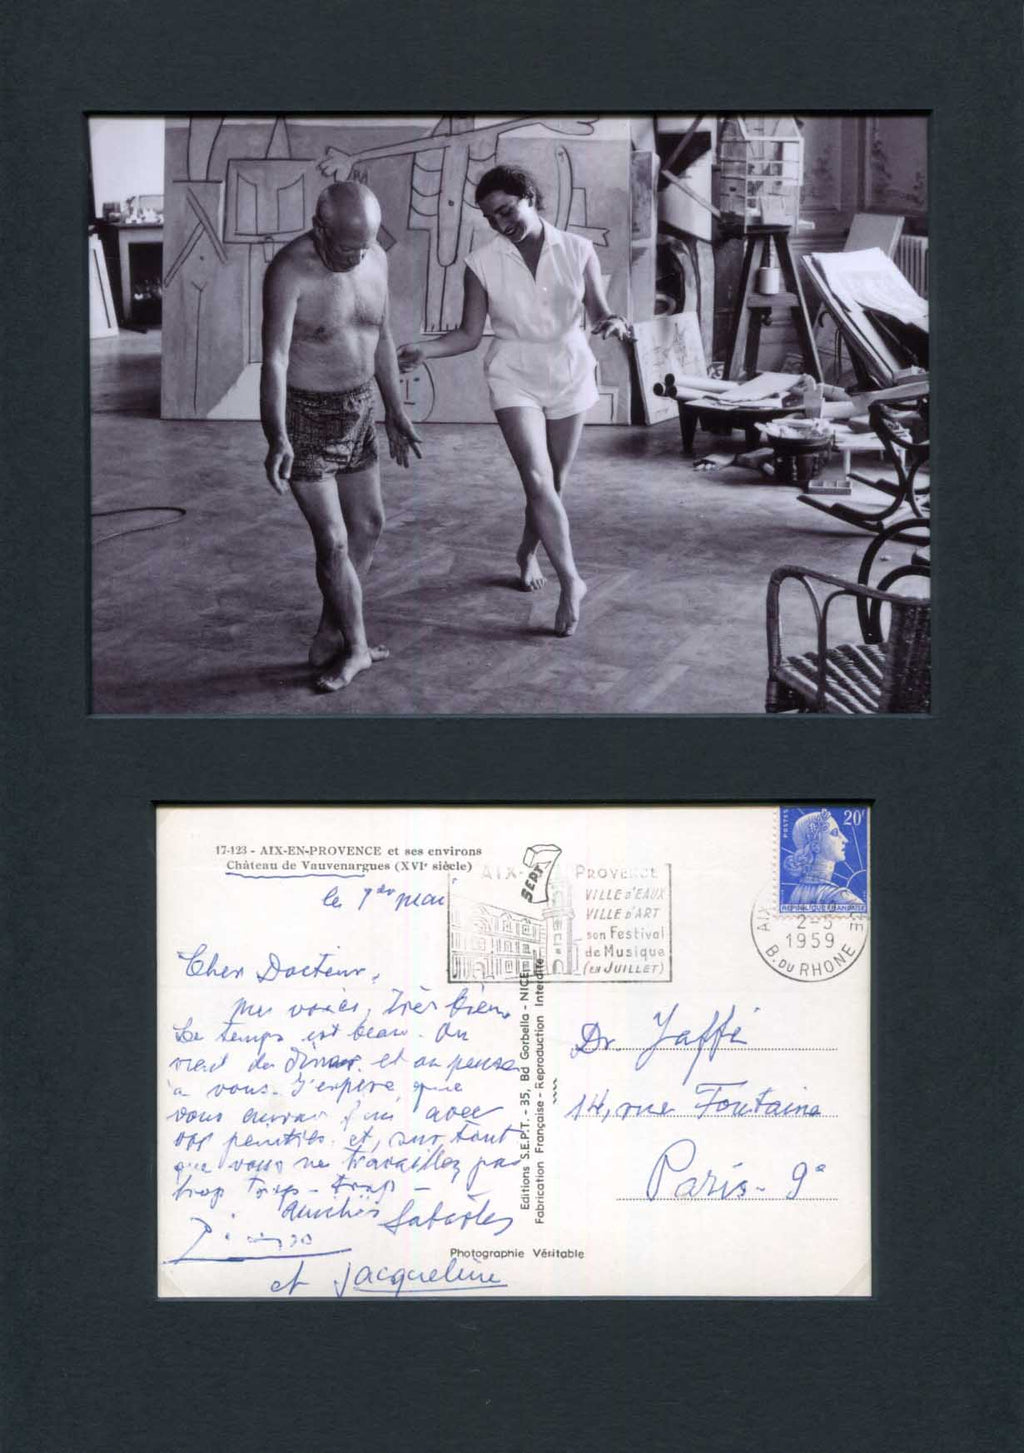 17-123 - AIX-EN-PROVENCE et ses environs
Château de Vauvenargues (XVIe siècle)
le 1er mai
Cher Docteur,
très bien,
Le temps est beau. On
vient de dîner, et on pense
à vous. J'espère que
vous aurez fini avec
vos et, surtout
que vous ne travaillez pas
trop trop - trop -
Amitiés Sabartés
Picasso
et Jacqueline
Editions S.E.P.T. - 35, Bd Gorbella - NICE
Fabrication Française - Reproduction Interdite
Photographie Véritable
SEPT
AIX-EN-PROVENCE
VILLE D'EAUX
VILLE D'ART
son Festival
de Musique
(EN JUILLET)
POSTES
20F
REPUBLIQUE FRANÇAISE
AIX
2-5
1959
B. DU RHONE
Dr. Jaffé
14, rue Fontaine
Paris - 9e